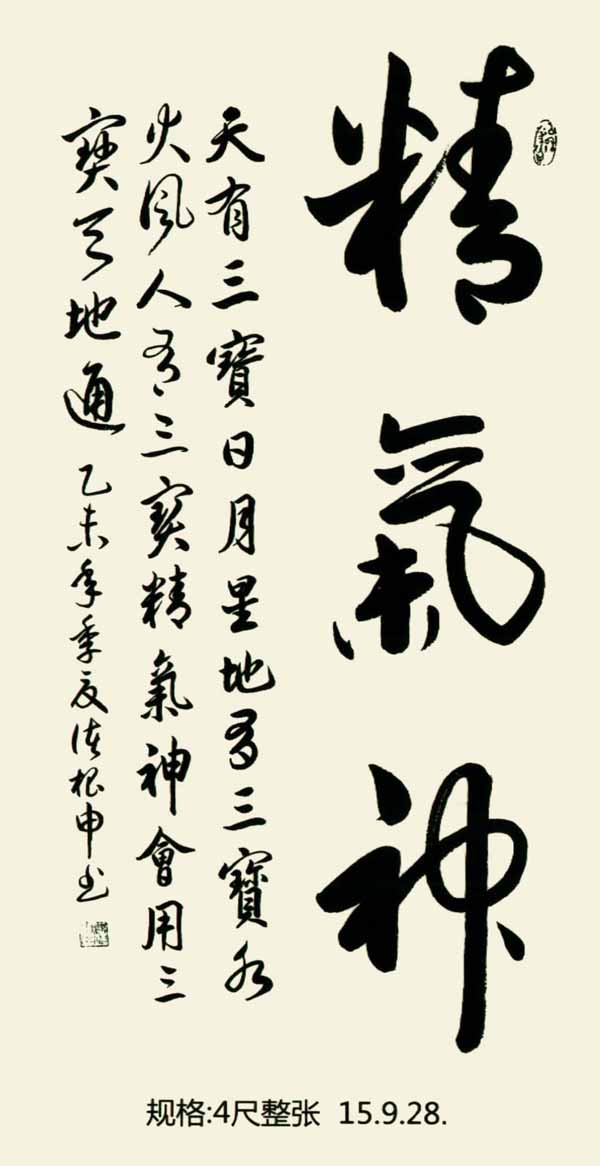 精氣神
天有三寶日月星地有三寶水
火風人有三寶精氣神會用三
寶天地通
乙未年季夏 根申书
规格:4尺整张 15.9.28.